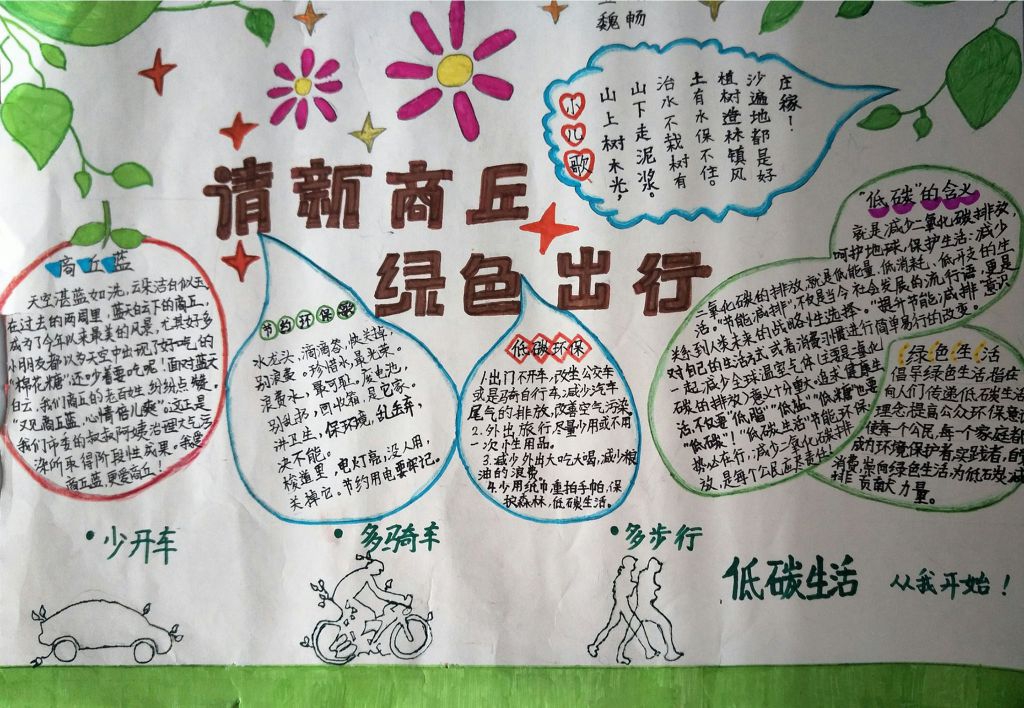 魏畅
小儿歌
山上树木光，
山下走泥浆。
治水不栽树有
土有水保不住。
植树造林镇风
沙遍地都是好
庄稼！
请新商丘
绿色出行
商丘蓝
天空湛蓝如洗，云朵洁白似玉，
在过去的两周里，蓝天白云下的商丘，
成为了今年以来最美的风景，尤其好多
小朋友都以为天空中出现了“好吃”的
“棉花糖”，还吵着要吃呢！面对蓝天
白云，我们商丘的老百姓纷纷点赞。
“又见商丘蓝，心情倍儿爽。”这正是
我们市委的叔叔阿姨治理大气污
染的取得阶段性成果。我爱
商丘蓝，更爱商丘！
节约环保歌
水龙头，滴滴答，快关掉，
别浪费。珍惜水，是光荣。
浪费水，最可耻。废电池，
别乱扔，回收箱，是它家。
讲卫生，保环境，乱丢弃，
决不能。
楼道里，电灯亮，没人用，
关掉它。节约用电要牢记。
低碳环保
1.出门不开车，改坐公交车
或是骑自行车，减少汽车
尾气的排放，改善空气污染。
2.外出旅行尽量少用或不用
一次性用品。
3.减少外出大吃大喝，减少粮
油的浪费
4.少用纸巾重拍手帕，保
护森林，低碳生活。
“低碳”的含义
就是减少二氧化碳排放，
呵护地球，保护生活，减少
二氧化碳的排放，就是低能量，低消耗，低开支的生
活。“节能减排”，不仅是当今社会发展的流行语，更是
关系到人类未来的战略性选择。“提升节能减排”意识
对自己的生活方式或者消费习惯进行简单易行的改变。
一起减少全球温室气体（主要是二氧化
碳的排放）意义十分重大。追求健康生
活，不仅要“低脂”“低盐”“低糖”也要
“低碳”！“低碳生活”节能环保
势必在行，减少二氧化碳排
放，是每个公民应尽责任
绿色生活
倡导绿色生活，指在
向人们传递低碳生活
理念，提高公众环保意识
使每个公民，每个家庭都
成为环境保护者，实践者，的
消费，崇尚绿色生活，为低碳减
排贡献力量。
•少开车
•多骑车
•多步行
低碳生活 从我开始！